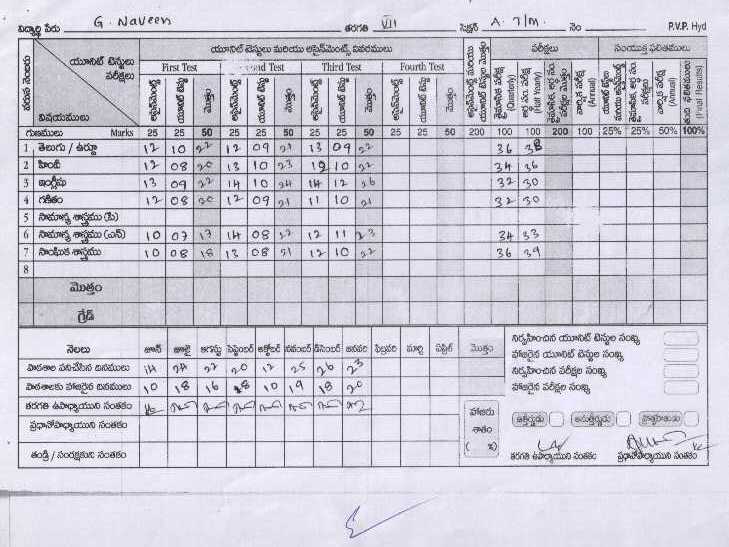 విద్యార్థి పేరు G. Naveen తరగతి VII సెక్షన్ A. 7/M. నెం P.V.P. Hyd
వరుస నెంబరు యూనిట్ టెస్టులు పరీక్షలు విషయములు
యూనిట్ టెస్టులు మరియు అసైన్‌మెంట్స్ వివరములు పరీక్షలు సంయుక్త ఫలితములు
First Test Second Test Third Test Fourth Test
అసైన్‌మెంట్స్ యూనిట్ టెస్టు మొత్తం అసైన్‌మెంట్స్ యూనిట్ టెస్టు మొత్తం అసైన్‌మెంట్స్ యూనిట్ టెస్టు మొత్తం అసైన్‌మెంట్స్ యూనిట్ టెస్టు మొత్తం
(Quarterly) (Half Yearly) (Annual) (Annual) (Final Results)
గుణములు Marks 25 25 50 25 25 50 25 25 50 25 25 50 200 100 100 200 100 25% 25% 50% 100%
1 తెలుగు / ఉర్దూ 12 10 22 12 09 21 13 09 22 36 38
2 హిందీ 12 08 20 13 10 23 12 10 22 34 36
3 ఇంగ్లీషు 13 09 22 14 10 24 14 12 26 32 30
4 గణితం 12 08 20 12 09 21 11 10 21 32 30
5 సామాన్య శాస్త్రము (పి)
6 సామాన్య శాస్త్రము (ఎన్) 10 07 17 14 08 22 12 11 23 34 33
7 సాంఘిక శాస్త్రము 10 08 18 13 08 21 12 10 22 36 39
8
మొత్తం
గ్రేడ్
నెలలు జూన్ జూలై ఆగస్టు సెప్టెంబర్ అక్టోబర్ నవంబర్ డిసెంబర్ జనవరి ఫిబ్రవరి మార్చి ఏప్రిల్ మొత్తం
పాఠశాల పనిచేసిన దినములు 14 24 22 20 12 25 26 23
పాఠశాలకు హాజరైన దినములు 10 18 16 18 10 19 18 20
తరగతి ఉపాధ్యాయుని సంతకం
ప్రధానోపాధ్యాయుని సంతకం
తండ్రి / సంరక్షకుని సంతకం
హాజరు శాతం ( % )
నిర్వహించిన యూనిట్ టెస్టుల సంఖ్య
హాజరైన యూనిట్ టెస్టుల సంఖ్య
నిర్వహించిన పరీక్షల సంఖ్య
హాజరైన పరీక్షల సంఖ్య
ఉత్తీర్ణుడు అనుత్తీర్ణుడు
తరగతి ఉపాధ్యాయుని సంతకం ప్రధానోపాధ్యాయుని సంతకం